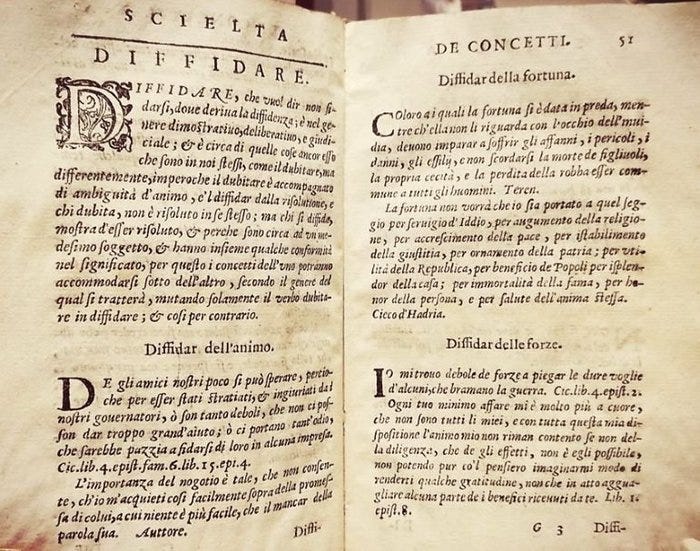 SCIELTA
DIFFIDARE.
DIFFIDARE, che vuol dir non fi-
darsi, doue deriua la diffidenza; è nel ge
nere dimostratiuo, deliberatiuo, e giudi-
ciale; & è circa di quelle cose ancor esso
che sono in noi stessi, come il dubitare, ma
differentemente, imperoche il dubitare è accompagnato
di ambiguità d'animo, e'l diffidar dalla risolutione, e
chi dubita, non è risoluto in se stesso; ma chi si diffida,
mostra d'esser risoluto, & perche sono circa ad vn me-
desimo soggetto, & hanno insieme qualche conformità
nel significato, per questo i concetti dell'vno potranno
accommodarsi sotto dell'altro, secondo il genere del
qual si tratterà, mutando solamente il verbo dubita-
re in diffidare; & cosi per contrario.
Diffidar dell'animo.
DE gli amici nostri poco si può sperare, percio-
che per esser stati stratiati, & ingiuriati da i
nostri gouernatori, ò son tanto deboli, che non ci pos-
son dar troppo grand'aiuto; ò ci portano tant'odio,
che sarebbe pazzia a fidarsi di loro in alcuna impresa.
Cic. lib. 4. epist. fam. 6. lib. 15. epi. 4.
L'importanza del nogotio è tale, che non consen-
te, ch'io m'acquieti cosi facilmente sopra della promes-
sa di colui, a cui niente è più facile, che il mancar della
parola sua. Auttore. Diffi-
DE CONCETTI. 51
Diffidar della fortuna.
COloro a i quali la fortuna si è data in preda, men-
tre ch'ella non li riguarda con l'occhio dell'inui-
dia, deuono imparar a soffrir gli affanni, i pericoli, i
danni, gli essilij, e non scordarsi la morte de figliuoli,
la propria cecità, e la perdita della robba esser com-
mune a tutti gli huomini. Teren.
La fortuna non vorrà che io sia portato a quel seg-
gio per seruigio d'Iddio, per augumento della religio-
ne, per accrescimento della pace, per istabilimento
della giustitia, per ornamento della patria; per vti-
lità della Republica, per beneficio de Popoli per isplen-
dor della casa; per immortalità della fama, per ho-
nor della persona, e per salute dell'anima stessa.
Cieco d'Hadria.
Diffidar delle forze.
IO mi trouo debole de forze a piegar le dure voglie
d'alcuni, che bramano la guerra. Cic. lib. 4. epist. 2.
Ogni tuo minimo affare mi è molto più a cuore,
che non sono tutti li miei, e con tutta questa mia di-
spositione l'animo mio non riman contento se non del-
la diligenza, che de gli effetti, non è egli possibile,
non potendo pur co'l pensiero imaginarmi modo di
renderti qualche gratitudine, non che in atto aggua-
gliare alcuna parte de i benefici riceuuti da te. Lib. 1.
epist. 8.
G 3 Diffi-